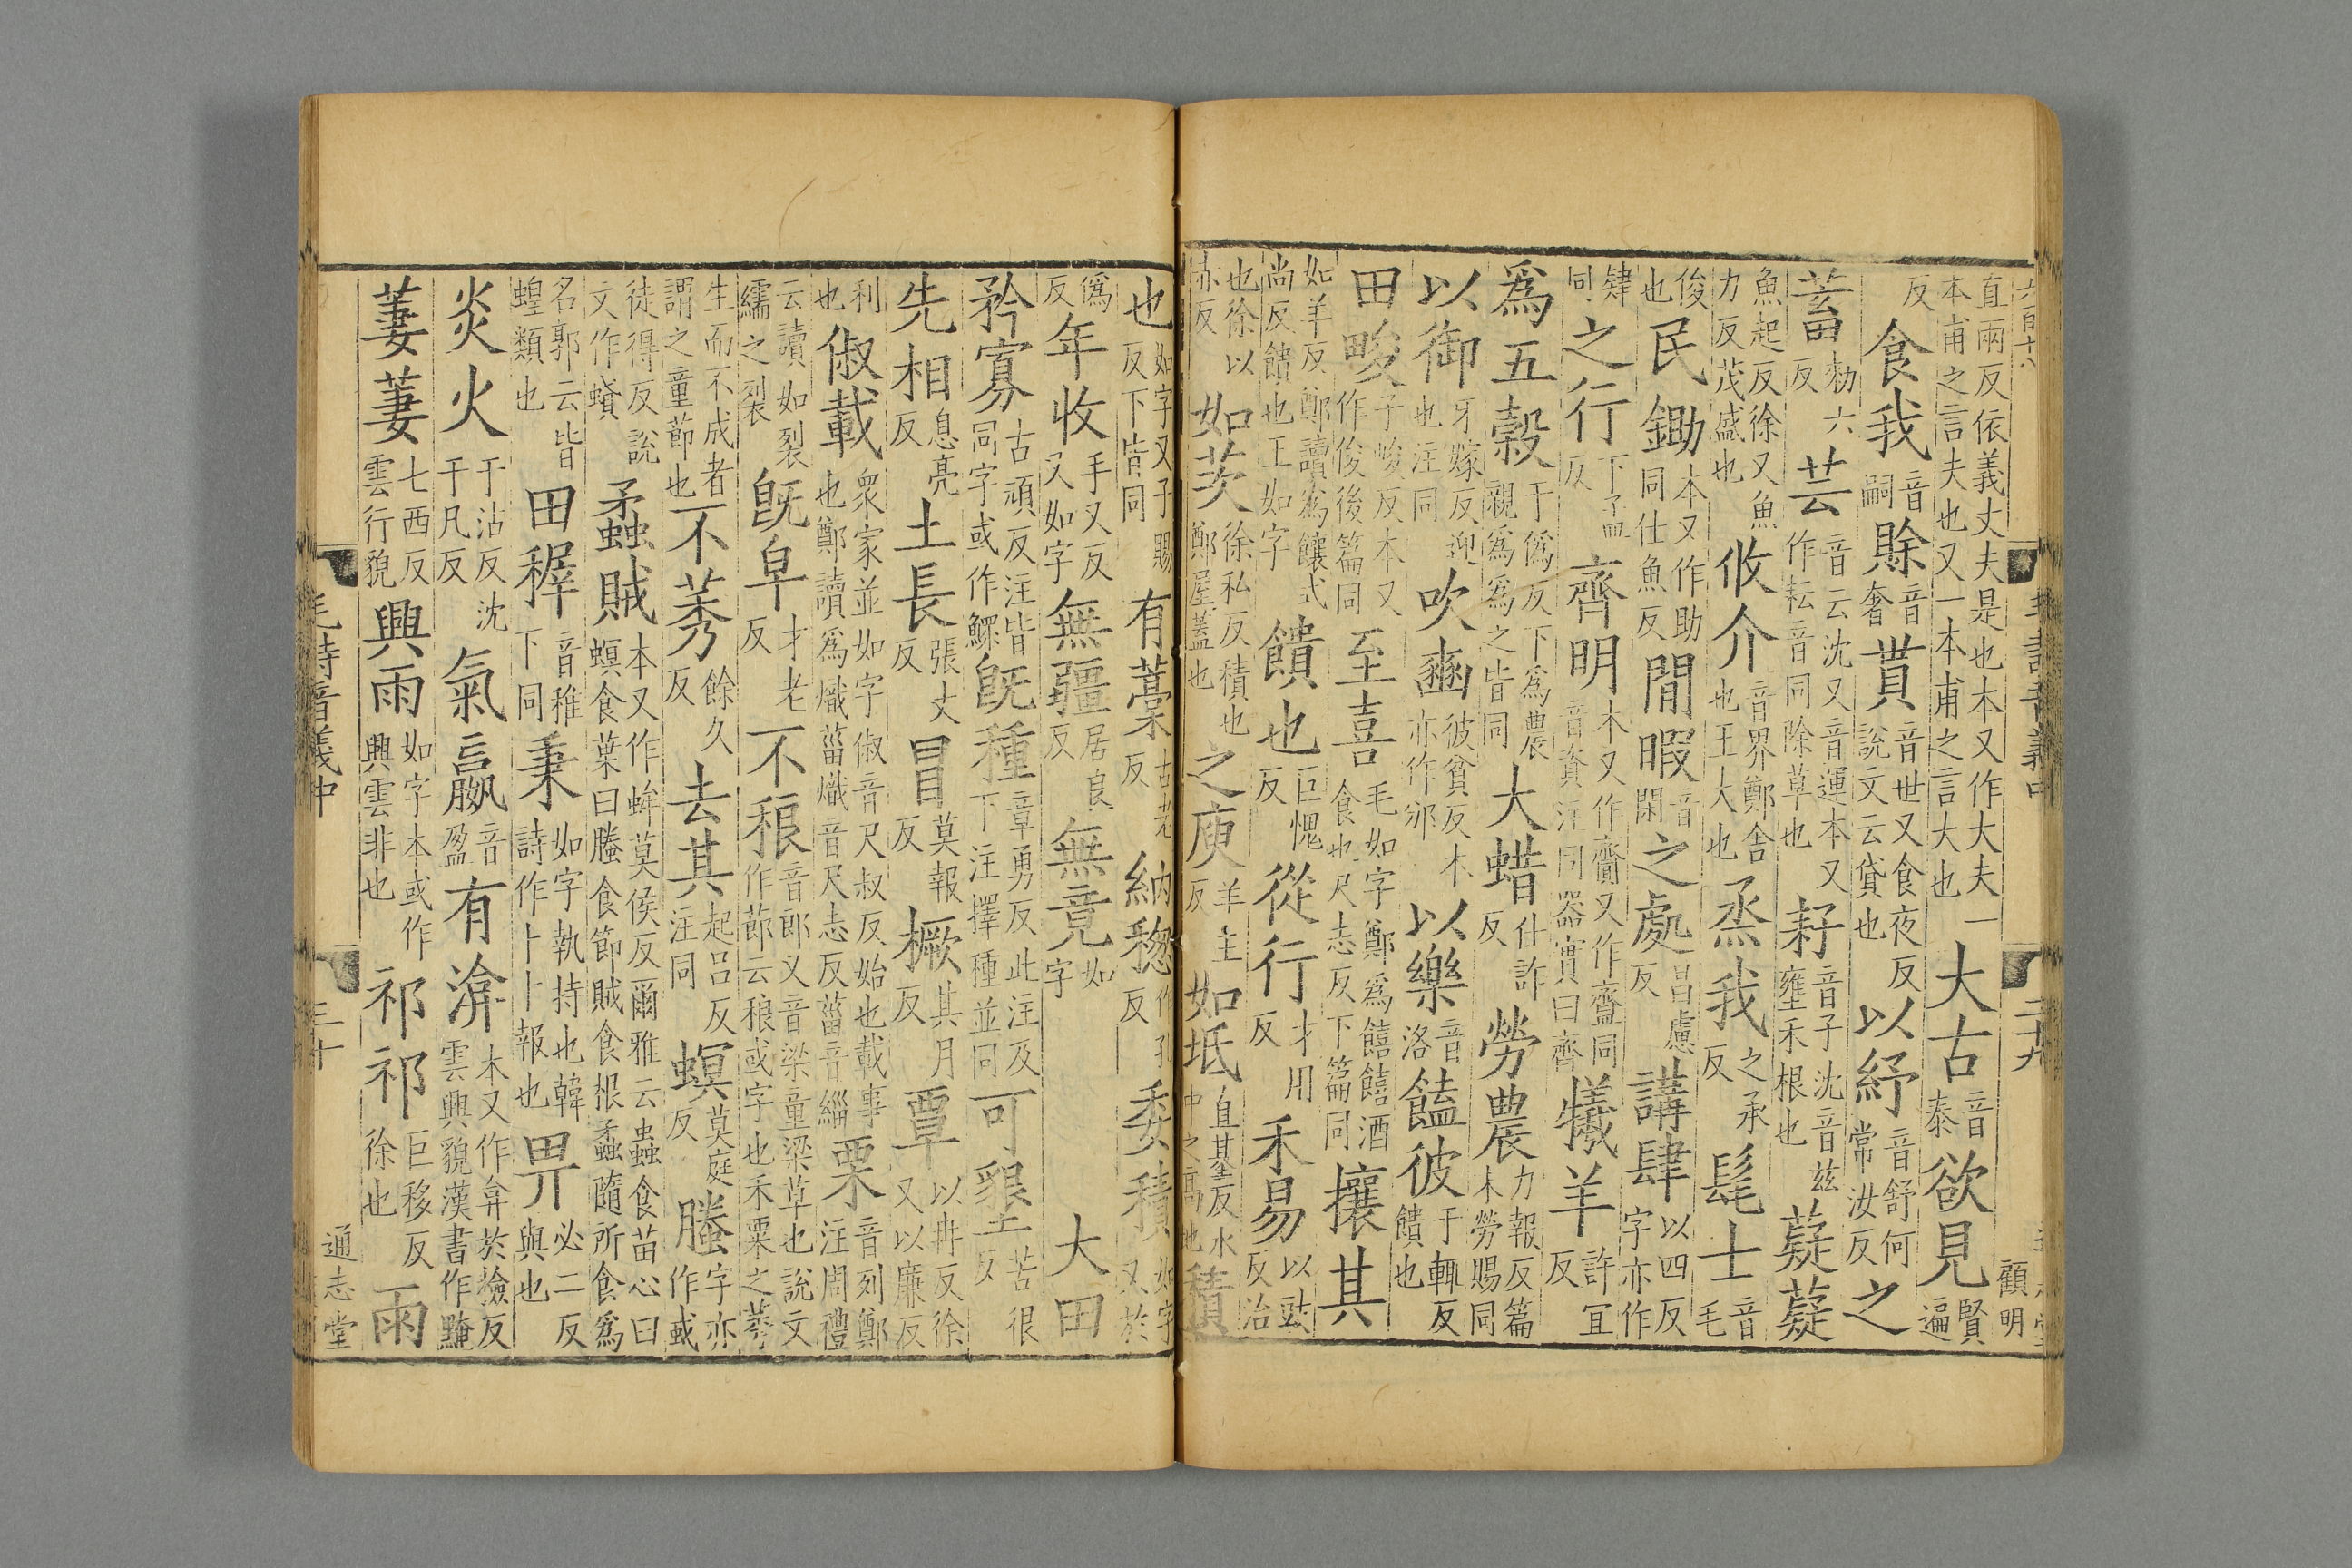 直兩反依義丈夫是也本又作大夫一
本甫之言夫也又一本甫之言大也
大古音泰欲見賢遍
反食我音嗣賖音奢貰音世又食夜反說文云貸也以紓音舒何常汝反之
蓄勑六反芸音云沈又音運本又作耘音同除草也耔音子沈音兹壅禾根也薿薿
魚起反徐又魚力反茂盛也攸介音界鄭舍也王大也烝我之承反髦士音毛
俊也民鋤本又作助同仕魚反閒暇音閑之處昌慮反講肆以四反字亦作
肄同之行下孟反齊明本又作齍又作齊同音資注同器實曰齊犧羊許宜反
爲五穀于僞反下爲農親爲爲之皆同大蜡仕詐反勞農力報反篇末勞賜同
以御牙嫁反迎也注同吹豳彼貧反本亦作邠以樂音洛饁彼于輒反饋也
田畯子峻反本又作俊後篇同至喜毛如字鄭爲饎饎酒食也尺志反下篇同攘其
如羊反鄭讀爲饟式尚反饋也王如字饋也巨愧反從行才用反禾易以豉反治
也徐以赤反如茨徐私反積也鄭屋蓋也之庾羊主反如坻直基反水中之高地也積
也如字又子賜反下皆同有藁古老反納稯作孔反委積如字又於
僞反年收手又反又如字無疆居良反無竟如字大田
矜寡古頑反注皆同字或作鰥旣種章勇反此注及下注擇種並同可墾苦很反
先相息亮反土長張丈反冒莫報反橛其月反覃以冉反徐又以廉反
利也俶載衆家並如字俶音尺叔反始也載事也鄭讀爲熾菑熾音尺志反菑音緇栗音列鄭注周禮
云讀如裂繻之裂旣皁才老反不稂音郎又音梁童梁草也說文作蓈云稂或字也禾粟之莠
生而不成者謂之童蓈也不莠餘久反去其起呂反注同螟莫庭反螣字亦作或
徒得反說文作蟘蟊賊本又作蛑莫侯反爾雅云蟲食苗心曰螟食葉曰螣食節賊食根蟊隨所食爲
名郭云皆蝗類也田稺音稚下同秉如字執持也韓詩作卜卜報也畀必二反與也
炎火于沾反沈于凡反氣嬴音盈有渰本又作弇於檢反雲興貌漢書作黤
萋萋七西反雲行貌興雨如字本或作興雲非也祁祁巨移反徐也雨
毛詩音義中
三十
通志堂
毛詩音義中
二十九
顧明